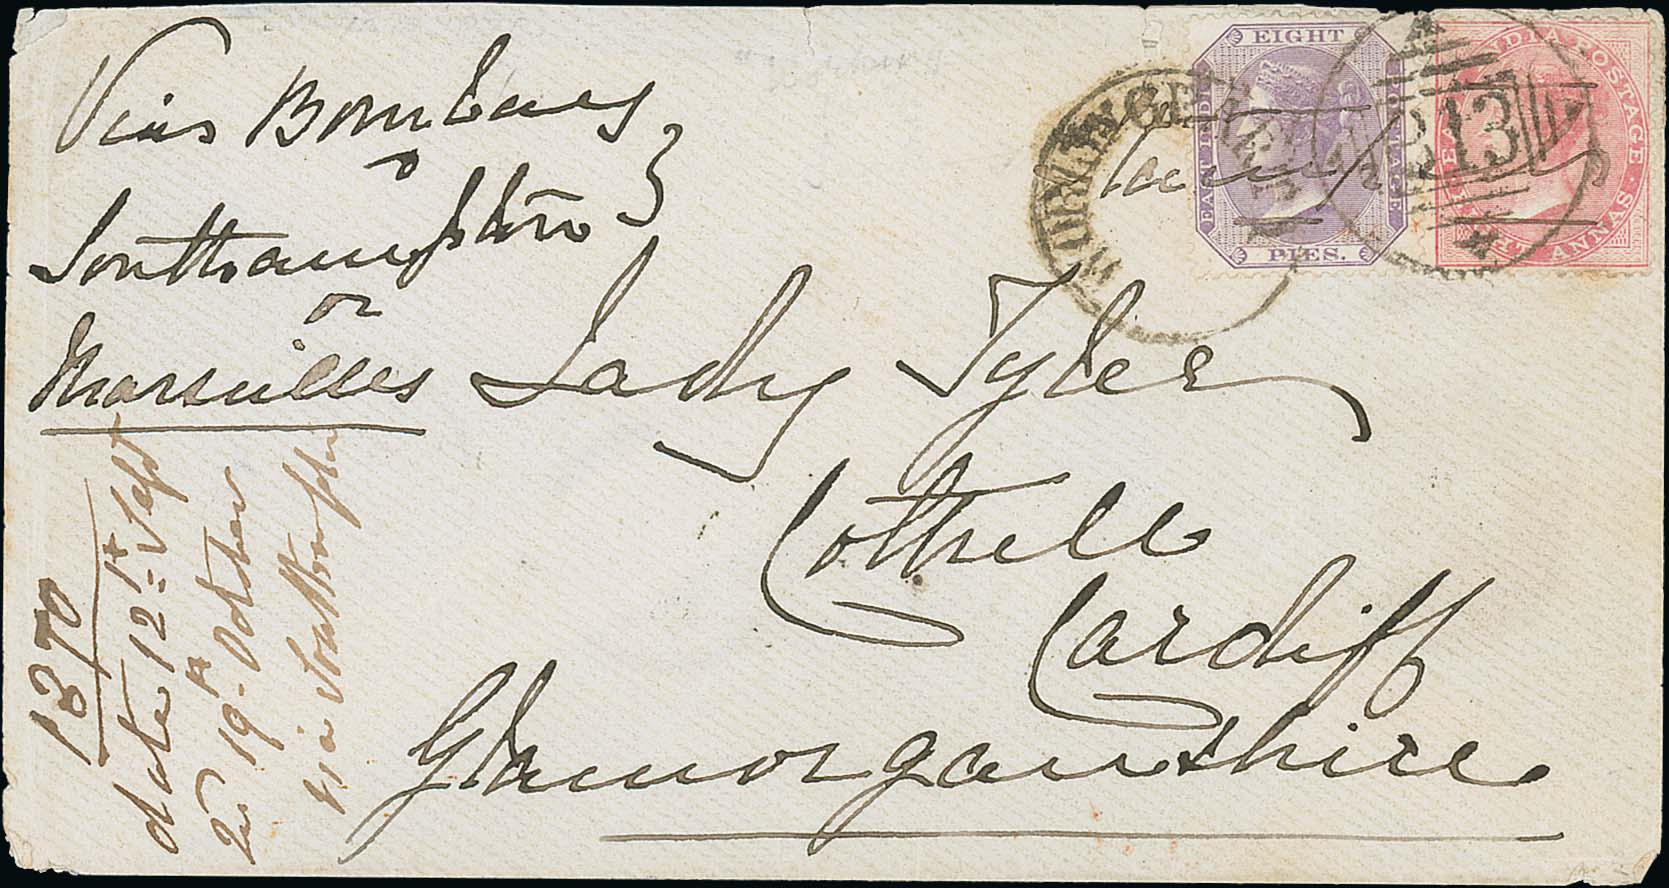 Via Bombay
Southampton
or
Marseilles
Lady Tyler
Cottrell
Cardiff
Glamorganshire
1870
date 12 = Sept
19 - October
via Southampton
EIGHT
EAST INDIA POSTAGE
PIES.
EAST INDIA POSTAGE
EIGHT ANNAS
213
MORRANGEE